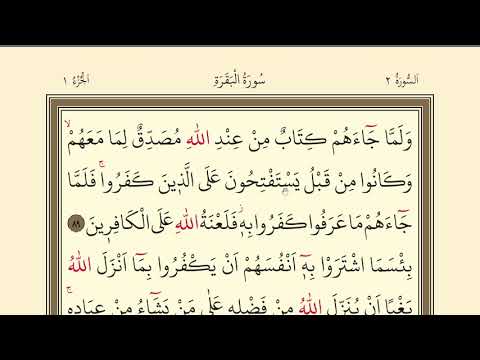 اَلسُّورَةُ ٢ سُورَةُ الْبَقَرَةِ اَلْجُزْءُ ١
وَلَمَّا جَٓاءَهُمْ كِتَابٌ مِنْ عِنْدِ اللّٰهِ مُصَدِّقٌ لِمَا مَعَهُمْۙ
وَكَانُوا مِنْ قَبْلُ يَسْتَفْتِحُونَ عَلَى الَّذ۪ينَ كَفَرُواۚ فَلَمَّا
جَٓاءَهُمْ مَا عَرَفُوا كَفَرُوا بِه۪ۘ فَلَعْنَةُ اللّٰهِ عَلَى الْكَافِر۪ينَ ﴿٨٩﴾
بِئْسَمَا اشْتَرَوْا بِه۪ٓ اَنْفُسَهُمْ اَنْ يَكْفُرُوا بِمَٓا اَنْزَلَ اللّٰهُ
بَغْيًا اَنْ يُنَزِّلَ اللّٰهُ مِنْ فَضْلِه۪ عَلٰى مَنْ يَشَٓاءُ مِنْ عِبَادِه۪ۚ